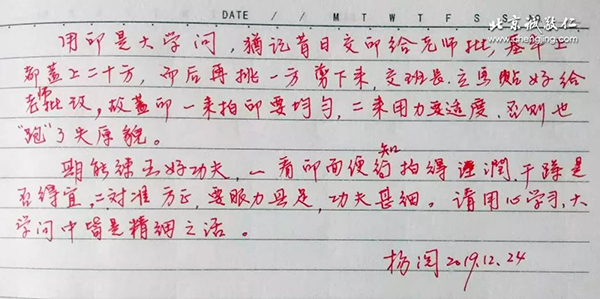 北京诚敬仁
www.chengjing.org
DATE / / M T W T F S S
用印是大学问，犹记昔日交印给老师批，基本上
都盖上二十方，而后再挑一方剪下来，交班长、立马贴好给
老师批改，故盖印一来拍印要均匀，二来用力要适度，否则也
“跑”了失原貌。
期能练出好功夫，一看印面便知拍得湿润，干躁是
否得宜，二对准方正，要眼力具足，功夫甚细。请用心学习，大
学问中皆是精细之活。
杨闰2019.12.24